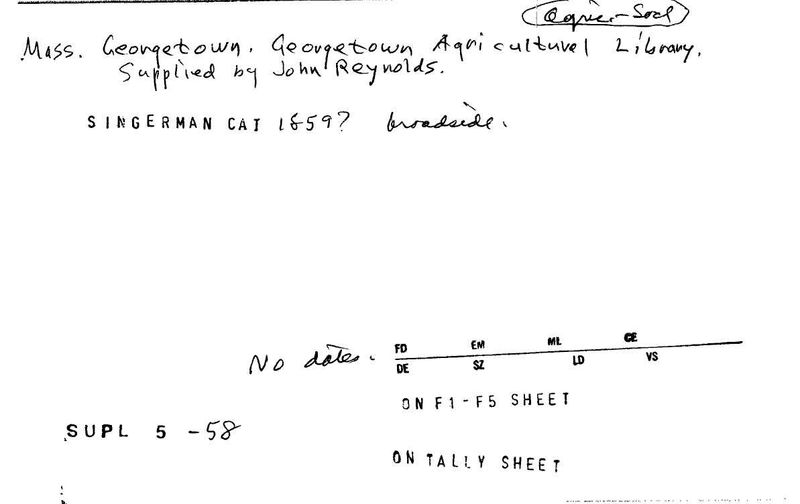 Agric-Socl
Mass. Georgetown. Georgetown Agricultural Library.
Supplied by John Reynolds.
SINGERMAN CAT 1859? broadside.
FD EM ML CE
No dates.
DE SZ LD VS
ON F1-F5 SHEET
SUPL 5 -58
ON TALLY SHEET